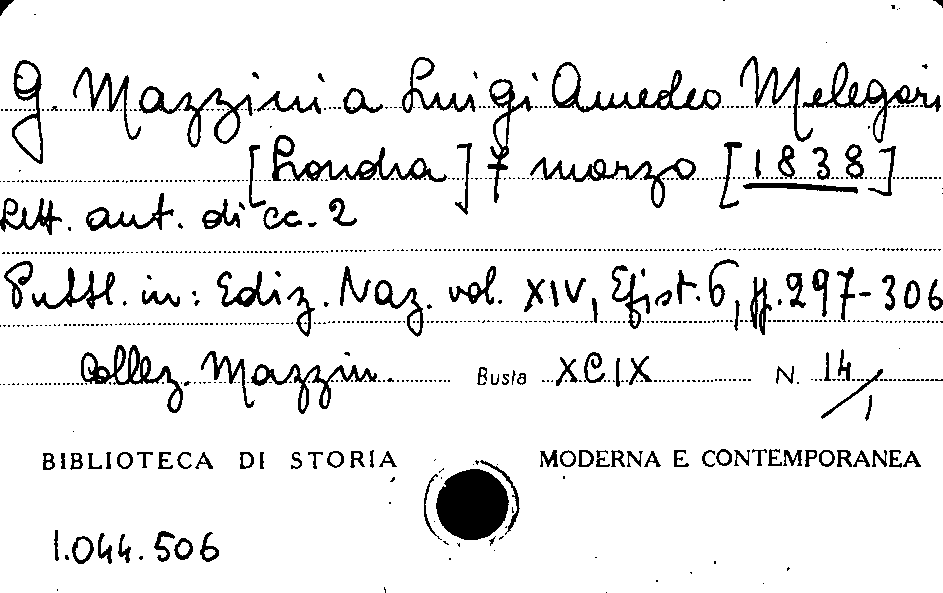 G. Mazzini a Luigi Amedeo Melegari
[Londra] 7 marzo [1838]
Lett. aut. di cc. 2
Pubbl. in: Ediz. Naz. vol. XIV, Epist. 6, pp. 297-306
Collez. Mazzin. Busta XCIX N. 14/1
BIBLIOTECA DI STORIA MODERNA E CONTEMPORANEA
1.044.506